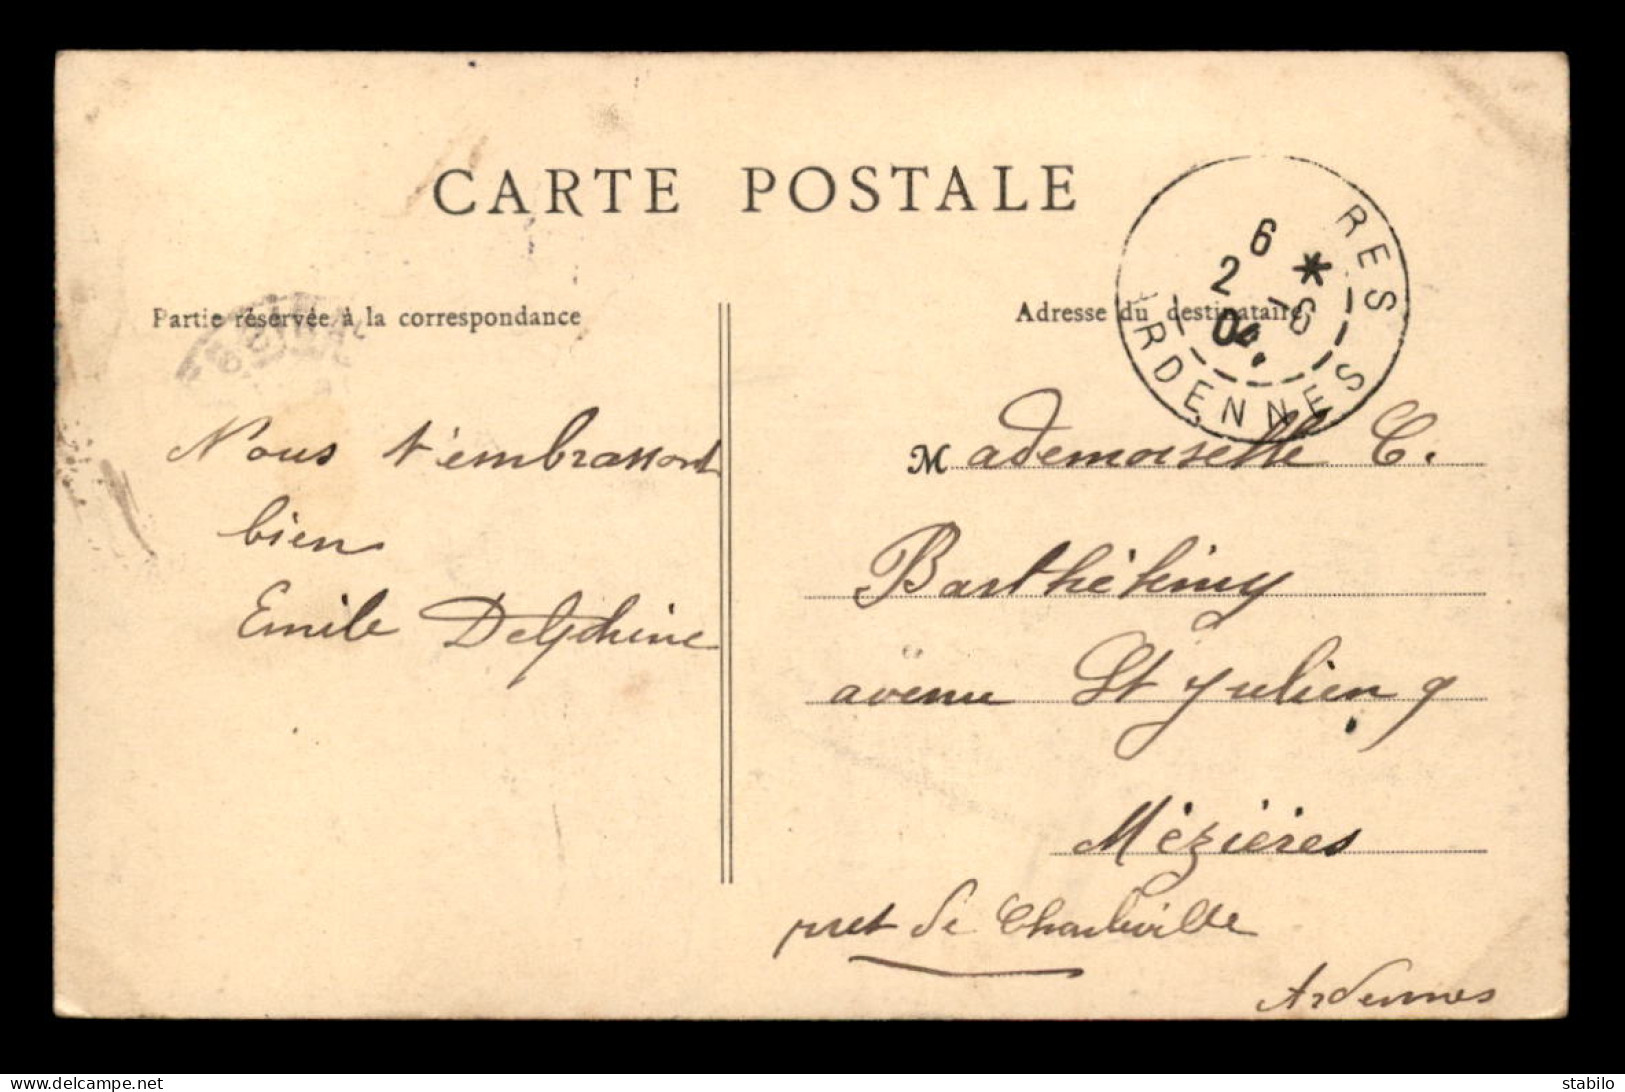 CARTE POSTALE
RES
ARDENNES
6 *
2 -6
04
Partie réservée à la correspondance
Adresse du destinataire
Nous t'embrassons
bien
Emile Delphine
Mademoiselle C.
Barthélémy
avenue St Julien 9
Mézières
près de Charleville
Ardennes
delcampe.net
stabilo